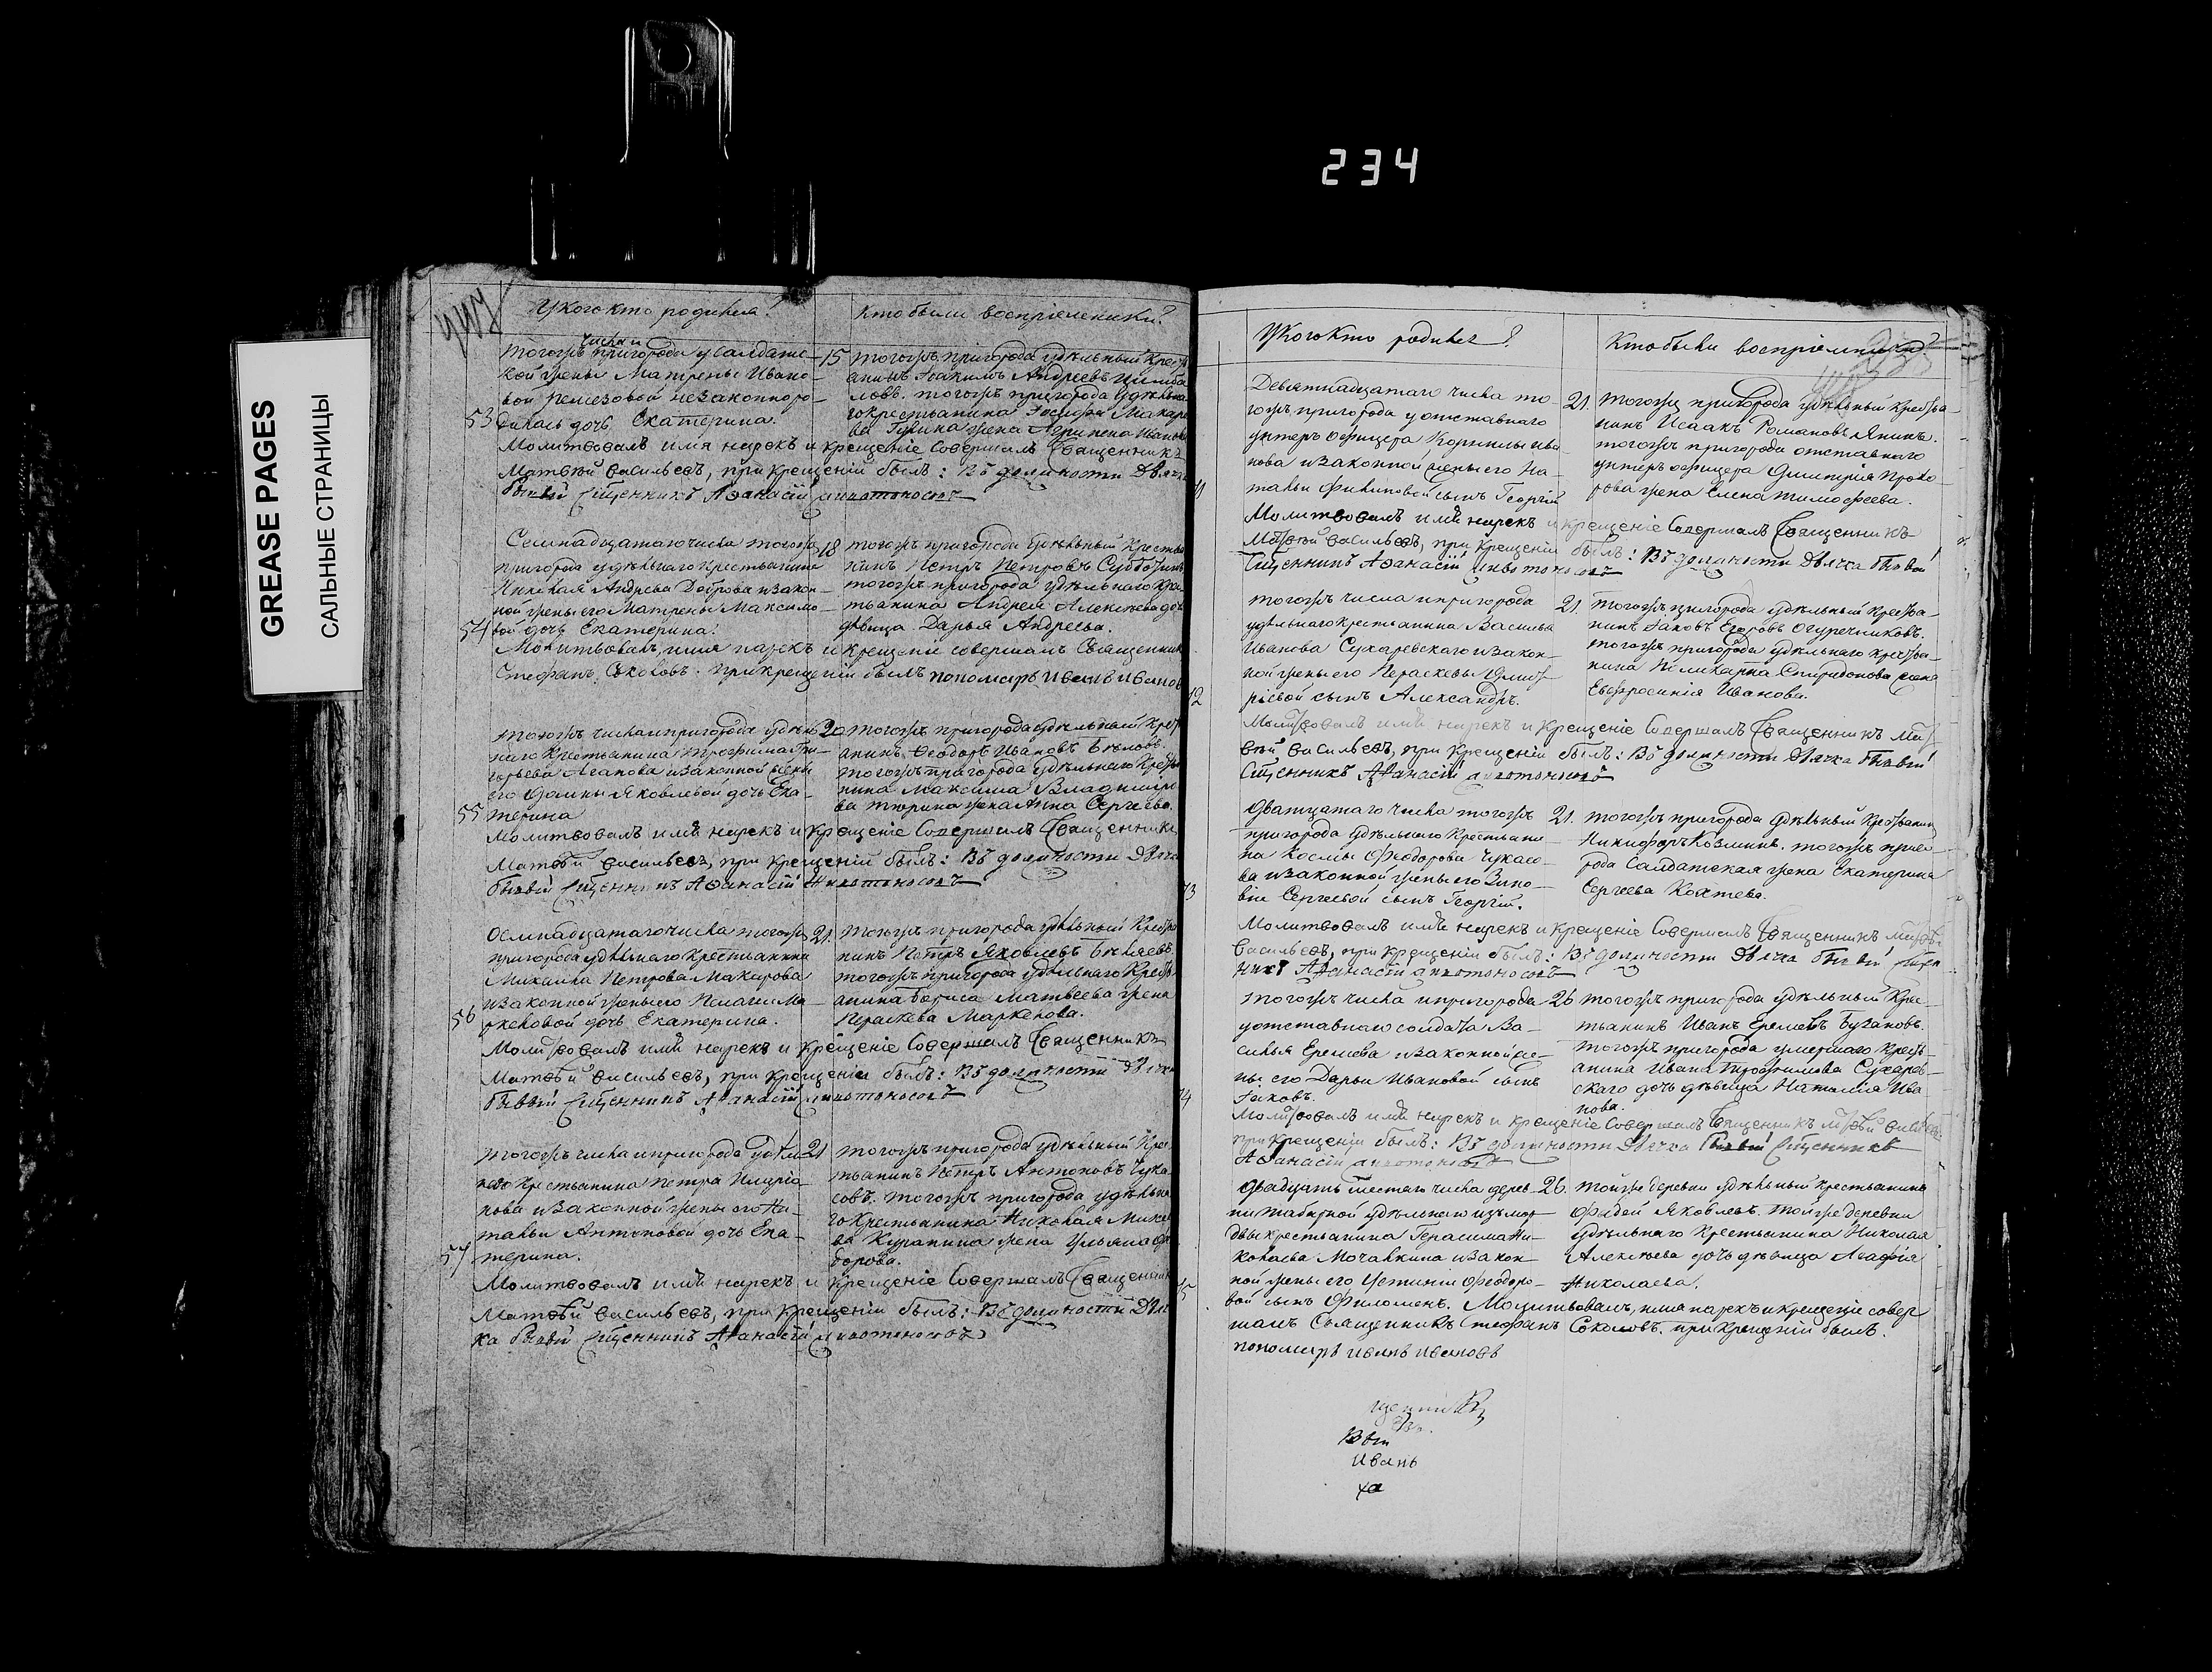 234
GREASE PAGES
САЛЬНЫЕ СТРАНИЦЫ
У кого кто родился?
Кто были воспріемники?
числа и
тогожъ пригорода у салдатс-
кой жены Матрены Ивано-
вой незаконноро-
53 дилась дочь Екатерина.
15 тогожъ пригорода удѣльный крест
анинъ Іоакимъ Андреевъ
ловъ. тогожъ пригорода удѣльна
го крестьянина Іосифа Макаро
ва жена Агрипена Иванова
Молитвовалъ имя нарекъ и крещеніе совершалъ Священникъ
Матвѣй Васильевъ, при крещеніи былъ: въ должности Дьячка
бывый Сщенникъ Аѳанасій Животоносовъ
Семнадцатаго числа тогожъ
пригорода удѣльнаго крестьянина
Николая Андреева Доброва и закон-
ной жены его Матрены Максимо-
54 вой дочь Екатерина.
18 тогожъ пригорода удѣльный Крестья
нинъ Петръ Петровъ Субботинъ
тогожъ пригорода удѣльнаго кре
тьянина Андрея Алексѣева доч
дѣвица Дарья Андреева.
Молитвовалъ, имя нарекъ и крещеніе совершалъ Священникъ
Стефанъ Соколовъ. при крещеніи былъ пономарь Иванъ Ивановъ
тогожъ числа и пригорода удѣль
наго Крестьянина Трофима Гри-
горьева Агапова и законной жены
его Домны Яковлевой дочь Ека-
55 терина
20 тогожъ пригорода удѣльный крес
анинъ Ѳеодоръ Ивановъ Бѣловъ.
тогожъ пригорода удѣльнаго Крестья
нина Максима Владимиро
ва Тюрина жена Анна Сергѣева.
Молитвовалъ имя нарекъ и крещеніе совершалъ Священникъ
Матвѣй Васильевъ, при крещеніи былъ: въ должности Дьячка
бывый Сщенникъ Аѳанасій Животоносовъ
Осмнадцатаго числа тогожъ
пригорода удѣльнаго Крестьянина
Михаила Петрова Макарова
и законной жены его Пелагеи Ма-
56 ркеловой дочь Екатерина.
21. тогожъ пригорода удѣльный Крестья
нинъ Петръ Яковлевъ Бѣляевъ.
тогожъ пригорода удѣльнаго Кресть
анина Бориса Матвѣева жена
Пераскева Маркелова.
Молитвовалъ имя нарекъ и крещеніе совершалъ Священникъ
Матвѣй Васильевъ, при крещеніи былъ: въ должности Дьячка
бывый Сщенникъ Аѳанасій Животоносовъ
тогожъ числа и пригорода удѣль
наго Крестьянина Петра
нова и законной жены его На-
тальи Антоновой дочь Ека-
57 терина.
21 тогожъ пригорода удѣльный Крес
тьянинъ Петръ Антоновъ Чука
совъ. тогожъ пригорода удѣльна
го крестьянина Николая
ва Курапина жена Ульяна Ѳе
дорова.
Молитвовалъ имя нарекъ и крещеніе совершалъ Священникъ
Матвѣй Васильевъ, при крещеніи былъ: въ должности Дьяч
ка бывый Сщенникъ Аѳанасій Животоносовъ
У кого кто родился?
Кто были воспріемники?
Девятнадцатаго числа то-
гожъ пригорода у отставнаго
унтеръ офицера Корнилы Ива
нова и законной жены его На-
тальи Филиповой сынъ Георгій
21. тогожъ пригорода удѣльный крестья-
нинъ Исаакъ Романовъ Янинъ.
тогожъ пригорода отставнаго
унтеръ офицера Димитрія Прохо-
рова жена Елена Тимофеева.
Молитвовалъ имя нарекъ и крещеніе совершалъ Священникъ
Матвѣй Васильевъ, при крещеніи былъ: въ должности Дьячка бывый
Сщенникъ Аѳанасій Животоносовъ
тогожъ числа и пригорода
удѣльнаго крестьянина Василья
Иванова Сухаревскаго и закон-
ной жены его Пераскевы Димит-
72 ріевой сынъ Александръ.
21. тогожъ пригорода удѣльный крестья-
нинъ Іаковъ Егоровъ Огуречниковъ.
тогожъ пригорода удѣльнаго крестья-
нина Поликарпа Спиридонова жена
Евфросинія Иванова.
Молитвовалъ имя нарекъ и крещеніе совершалъ Священникъ Мат
вѣй Васильевъ, при крещеніи былъ: въ должности Дьячка бывый
Сщенникъ Аѳанасій Животоносовъ
Дватцатаго числа тогожъ
пригорода удѣльнаго Крестьяни-
на Космы Ѳеодорова Чукасо-
ва и законной жены его Зино-
73 віи Сергѣевой сынъ Георгій.
21. тогожъ пригорода удѣльный крестьянин
Никифоръ Козминъ. тогожъ приго
рода Салдатская жена Екатерина
Сергѣева Коктева.
Молитвовалъ имя нарекъ и крещеніе совершалъ Священникъ Матвѣй
Васильевъ, при крещеніи былъ: въ должности Дьячка бывый Сщен
никъ Аѳанасій Животоносовъ
тогожъ числа и пригорода
у отставнаго солдата Ва-
силья Еремѣева и законной же-
ны его Дарьи Ивановой сынъ
74 Іаковъ.
26 тогожъ пригорода удѣльный Крес-
тьянинъ Иванъ Еремѣевъ Бузановъ.
тогожъ пригорода умершаго кресть-
анина Ивана Трофимова Сухарев-
скаго дочь дѣвица Наталія Ива
нова.
Молитвовалъ имя нарекъ и крещеніе совершалъ Священникъ Матвѣй Васильевъ
при крещеніи былъ: въ должности Дьячка бывый Сщенникъ
Аѳанасій Животоносовъ
Двадцать шестаго числа дерев-
ни удѣльнаго изъ мор-
двы крестьянина Герасима Ни-
колаева Мочалкина и закон-
75 ной жены его Устиніи Ѳеодоро-
вой сынъ Филомонъ.
26. тойже деревни удѣльный крестьянинъ
Фадей Яковлевъ. тойже деревни
удѣльнаго Крестьянина Николая
Алексѣева дочь дѣвица Агафія
Николаева.
Молитвовалъ, имя нарекъ и крещеніе совер
шалъ Священникъ Стефанъ Соколовъ. при крещеніи былъ.
пономарь Иванъ Ивановъ
щенникъ
Иванъ
ха